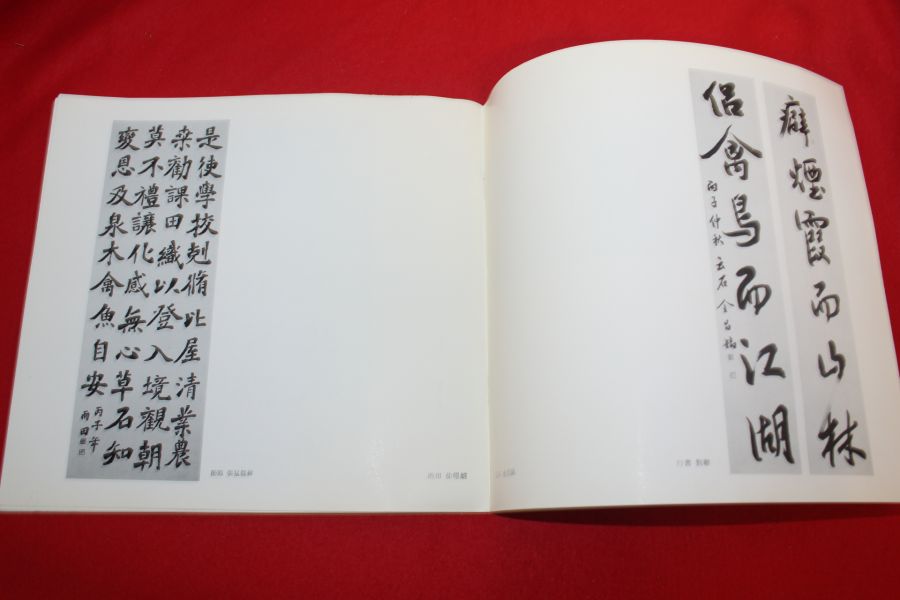 癖煙霞而山林
侶禽鳥而江湖
丙子仲秋 云石 金昌
行書 對聯
是使學校剋脩比屋清業農
桒勸課田織以登入境觀朝
莫不禮讓化感無心草石知
變恩及泉木禽魚自安
丙子年
雨田